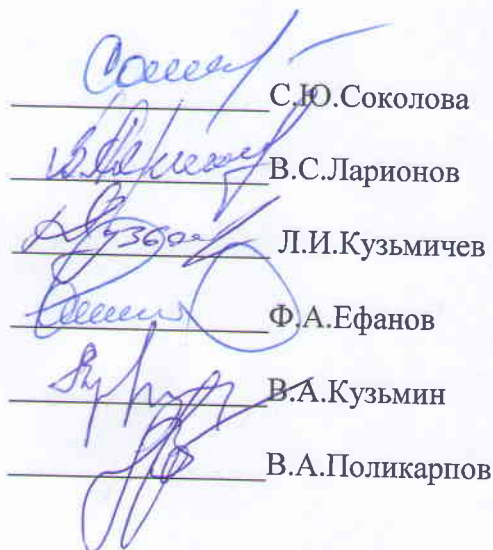 С.Ю.Соколова
В.С.Ларионов
Л.И.Кузьмичев
Ф.А.Ефанов
В.А.Кузьмин
В.А.Поликарпов